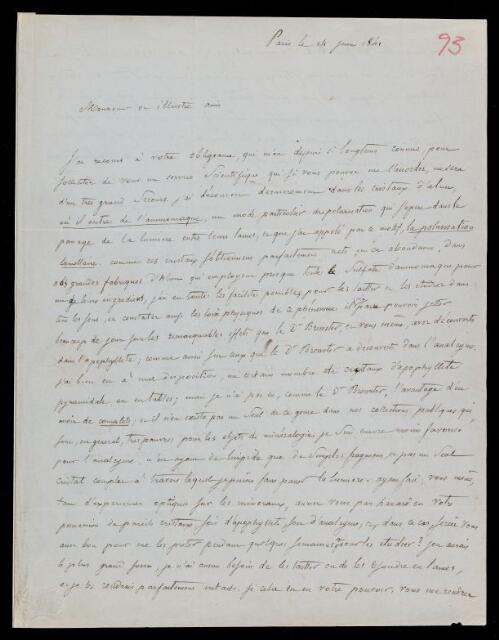 Paris le 14 juin 1841
93
Monsieur et illustre ami
J'ai recours à votre obligeance, qui m'est depuis si longtems connue, pour
solliciter de vous un service scientifique qui, si vous pouvez me l'accorder, me sera
d'un très grand secours. j'ai découvert dernièrement dans les cristaux d'alun,
où il entre de l'ammoniaque, un mode particulier de polarisation qui s'opère dans le
passage de la lumière entre leurs lames, et que j'ai appelé par ce motif, la polarisation
lamellaire. comme ces cristaux s'obtiennent parfaitement nets et en abondance, dans
nos grandes fabriques d'Alun qui emploient presque toutes le Sulfate d'ammoniaque pour
un de leurs ingrédients, j'ai eu toutes les facilités possibles pour les tailler et les étudier dans
tous les sens, et constater ainsi les lois physiques de ce phénomène. il paraît pouvoir jeter
beaucoup de jour sur les remarquables effets que le Dr Brewster, et vous même, avez découverts
dans l'apophyllite; comme aussi sur ceux que le Dr Brewster a découvert dans l'analcime.
j'ai bien eu à ma disposition, un certain nombre de cristaux d'apophyllite
pyramidale et en tables; mais je n'ai pas eu, comme le Dr Brewster, l'avantage d'en
avoir de complets; et il n'en existe pas un seul de ce genre dans nos collections publiques qui
sont, en général, très pauvres pour les objets de minéralogie. je suis encore moins favorisé
pour l'analcime, n'en ayant de limpide que de simples fragmens, et pas un seul
cristal complet à travers lequel je puisse faire passer la lumière. ayant fait, vous même,
tant d'expériences optiques sur les minéraux, auriez vous par hazard en votre
possession de pareils cristaux soit d'apophyllite soit d'analcime, et, dans ce cas, seriez vous
assez bon pour me les prêter pendant quelques semaines pour les étudier? j'en aurais
le plus grand soin, je n'ai aucun besoin de les tailler ou de les refendre en lames,
et je les rendrais parfaitement intacts. si cela est en votre pouvoir, vous me rendrez